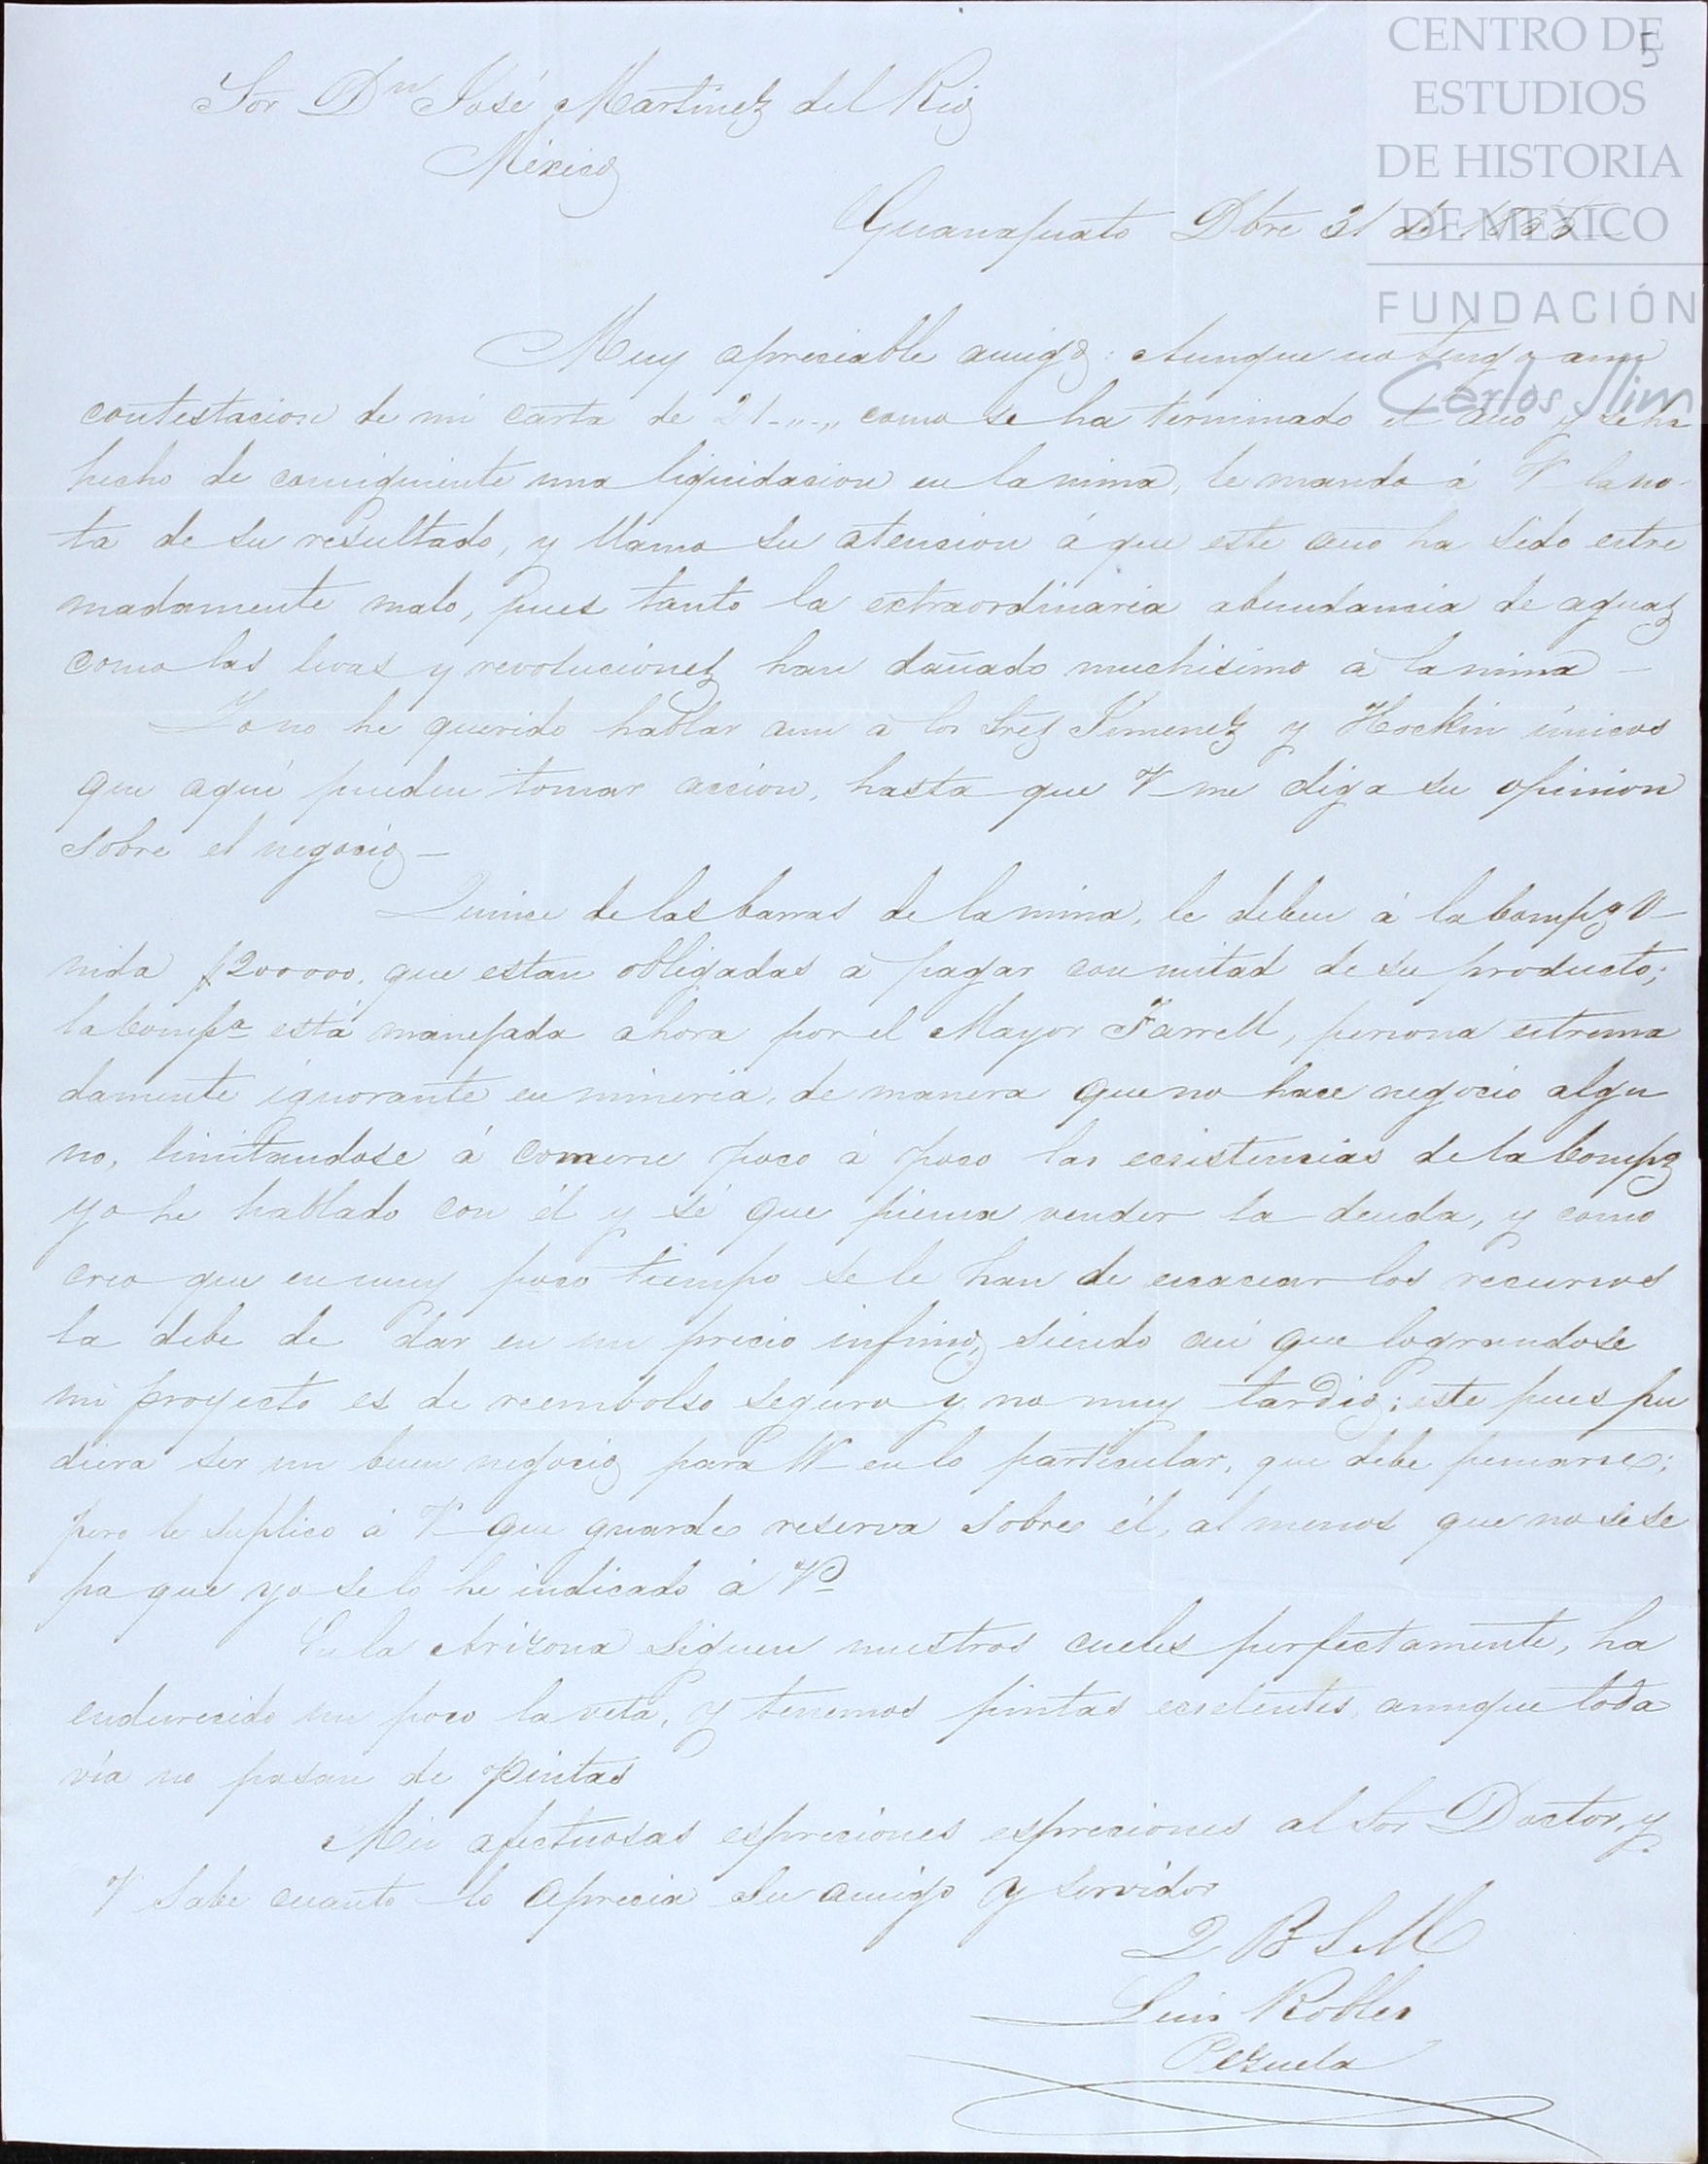 CENTRO DE
ESTUDIOS
DE HISTORIA
DE MÉXICO
FUNDACIÓN
Carlos Slim
5
Sor Dn José Martinez del Rio
México
Guanajuato Dbre 31 de
Muy apreciable amigo: Aunque no tengo aun
contestacion de mi carta de 21 -„-„ como se ha terminado el año y se ha
hecho de consiguiente una liquidacion en la mina, le mando á V la no-
ta de su resultado, y llamo su atencion á que este año ha sido estre
madamente malo, pues tanto la extraordinaria abundancia de aguas
como las levas y revoluciones han dañado muchisimo á la mina —
Yo no he querido hablar aun á los Sres Jimenez y Hockin únicos
que aqui pueden tomar accion, hasta que V me diga su opinion
sobre el negocio —
Quince de las barras de la mina, le deben á la Compa U-
nida $200000. que estan obligadas á pagar con mitad de su producto;
la Compa está manejada ahora por el Mayor Farrell, persona estrema
damente ignorante en mineria, de manera que no hace negocio algu
no, limitandose á comerse poco á poco las ecsistencias de la Compa
yo he hablado con él y sé que piensa vender la deuda, y como
creo que en muy poco tiempo se le han de escacear los recursos
la debe de dar en un precio infimo, siendo asi que lograndose
mi proyecto es de reembolso seguro y no muy tardio; este pues pu
diera ser un buen negocio para VV en lo particular, que debe pensarse;
pero le suplico á V que guarde reserva sobre él, al menos que no se se
pa que yo se lo he indicado á Vd
En la Arizona siguen nuestros cueles perfectamente, ha
endurecido un poco la veta, y tenemos pintas ecselentes, aunque toda
vía no pasan de pintas
Mis afectuosas espresiones espresiones al Sor Doctor, y
V sabe cuanto lo aprecia su amigo y servidor
Q B S M
Luis Robles
Pezuela